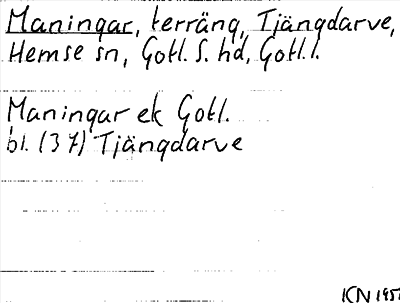 Maningar, terräng, Tjängdarve,
Hemse sn, Gotl. S. hd, Gotl. l.
Maningar ek Gotl.
bl. (37) Tjängdarve
ICN 1951